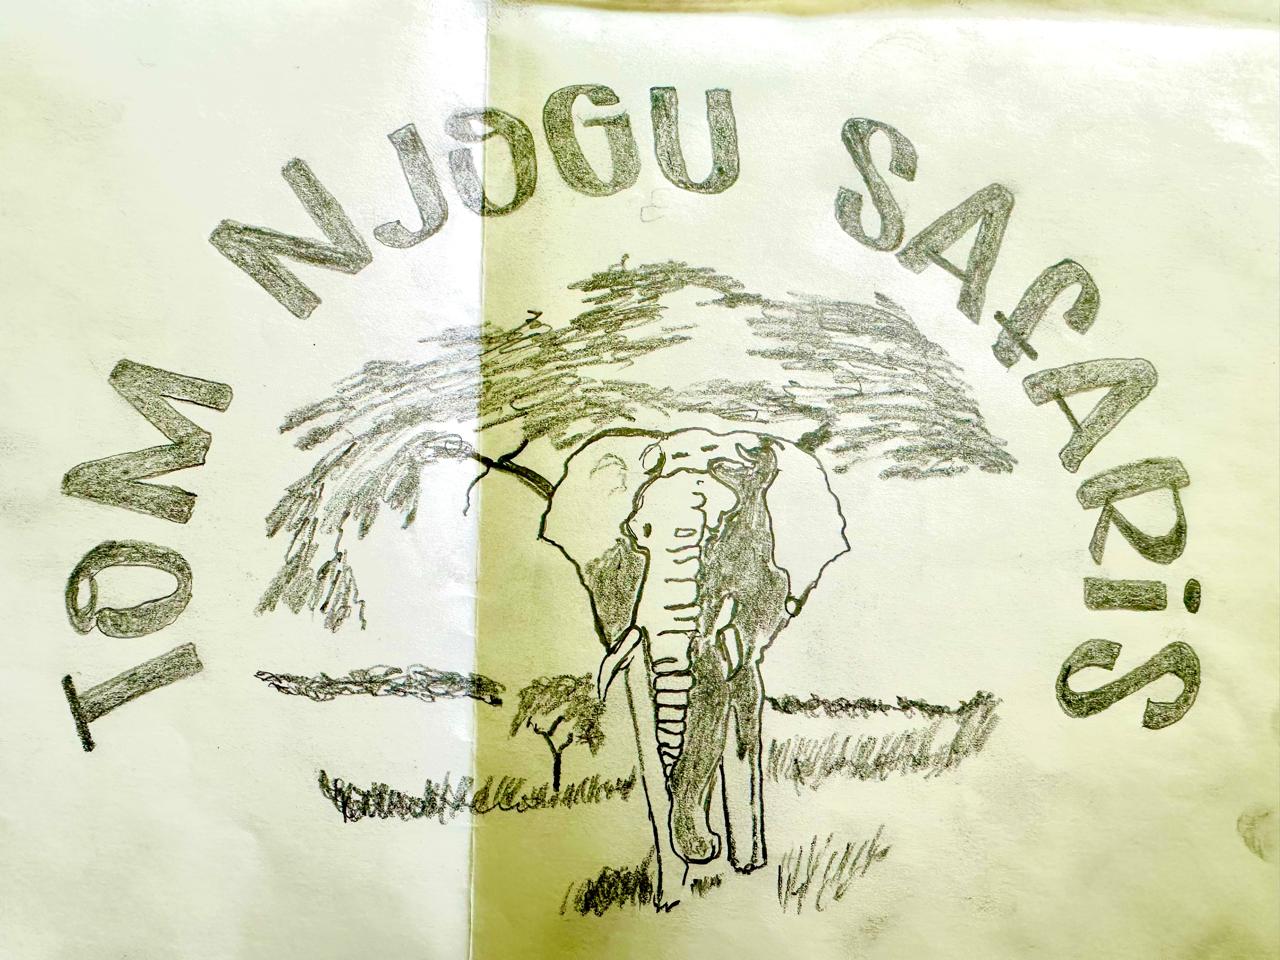 TOM NJOGU SAFARiS